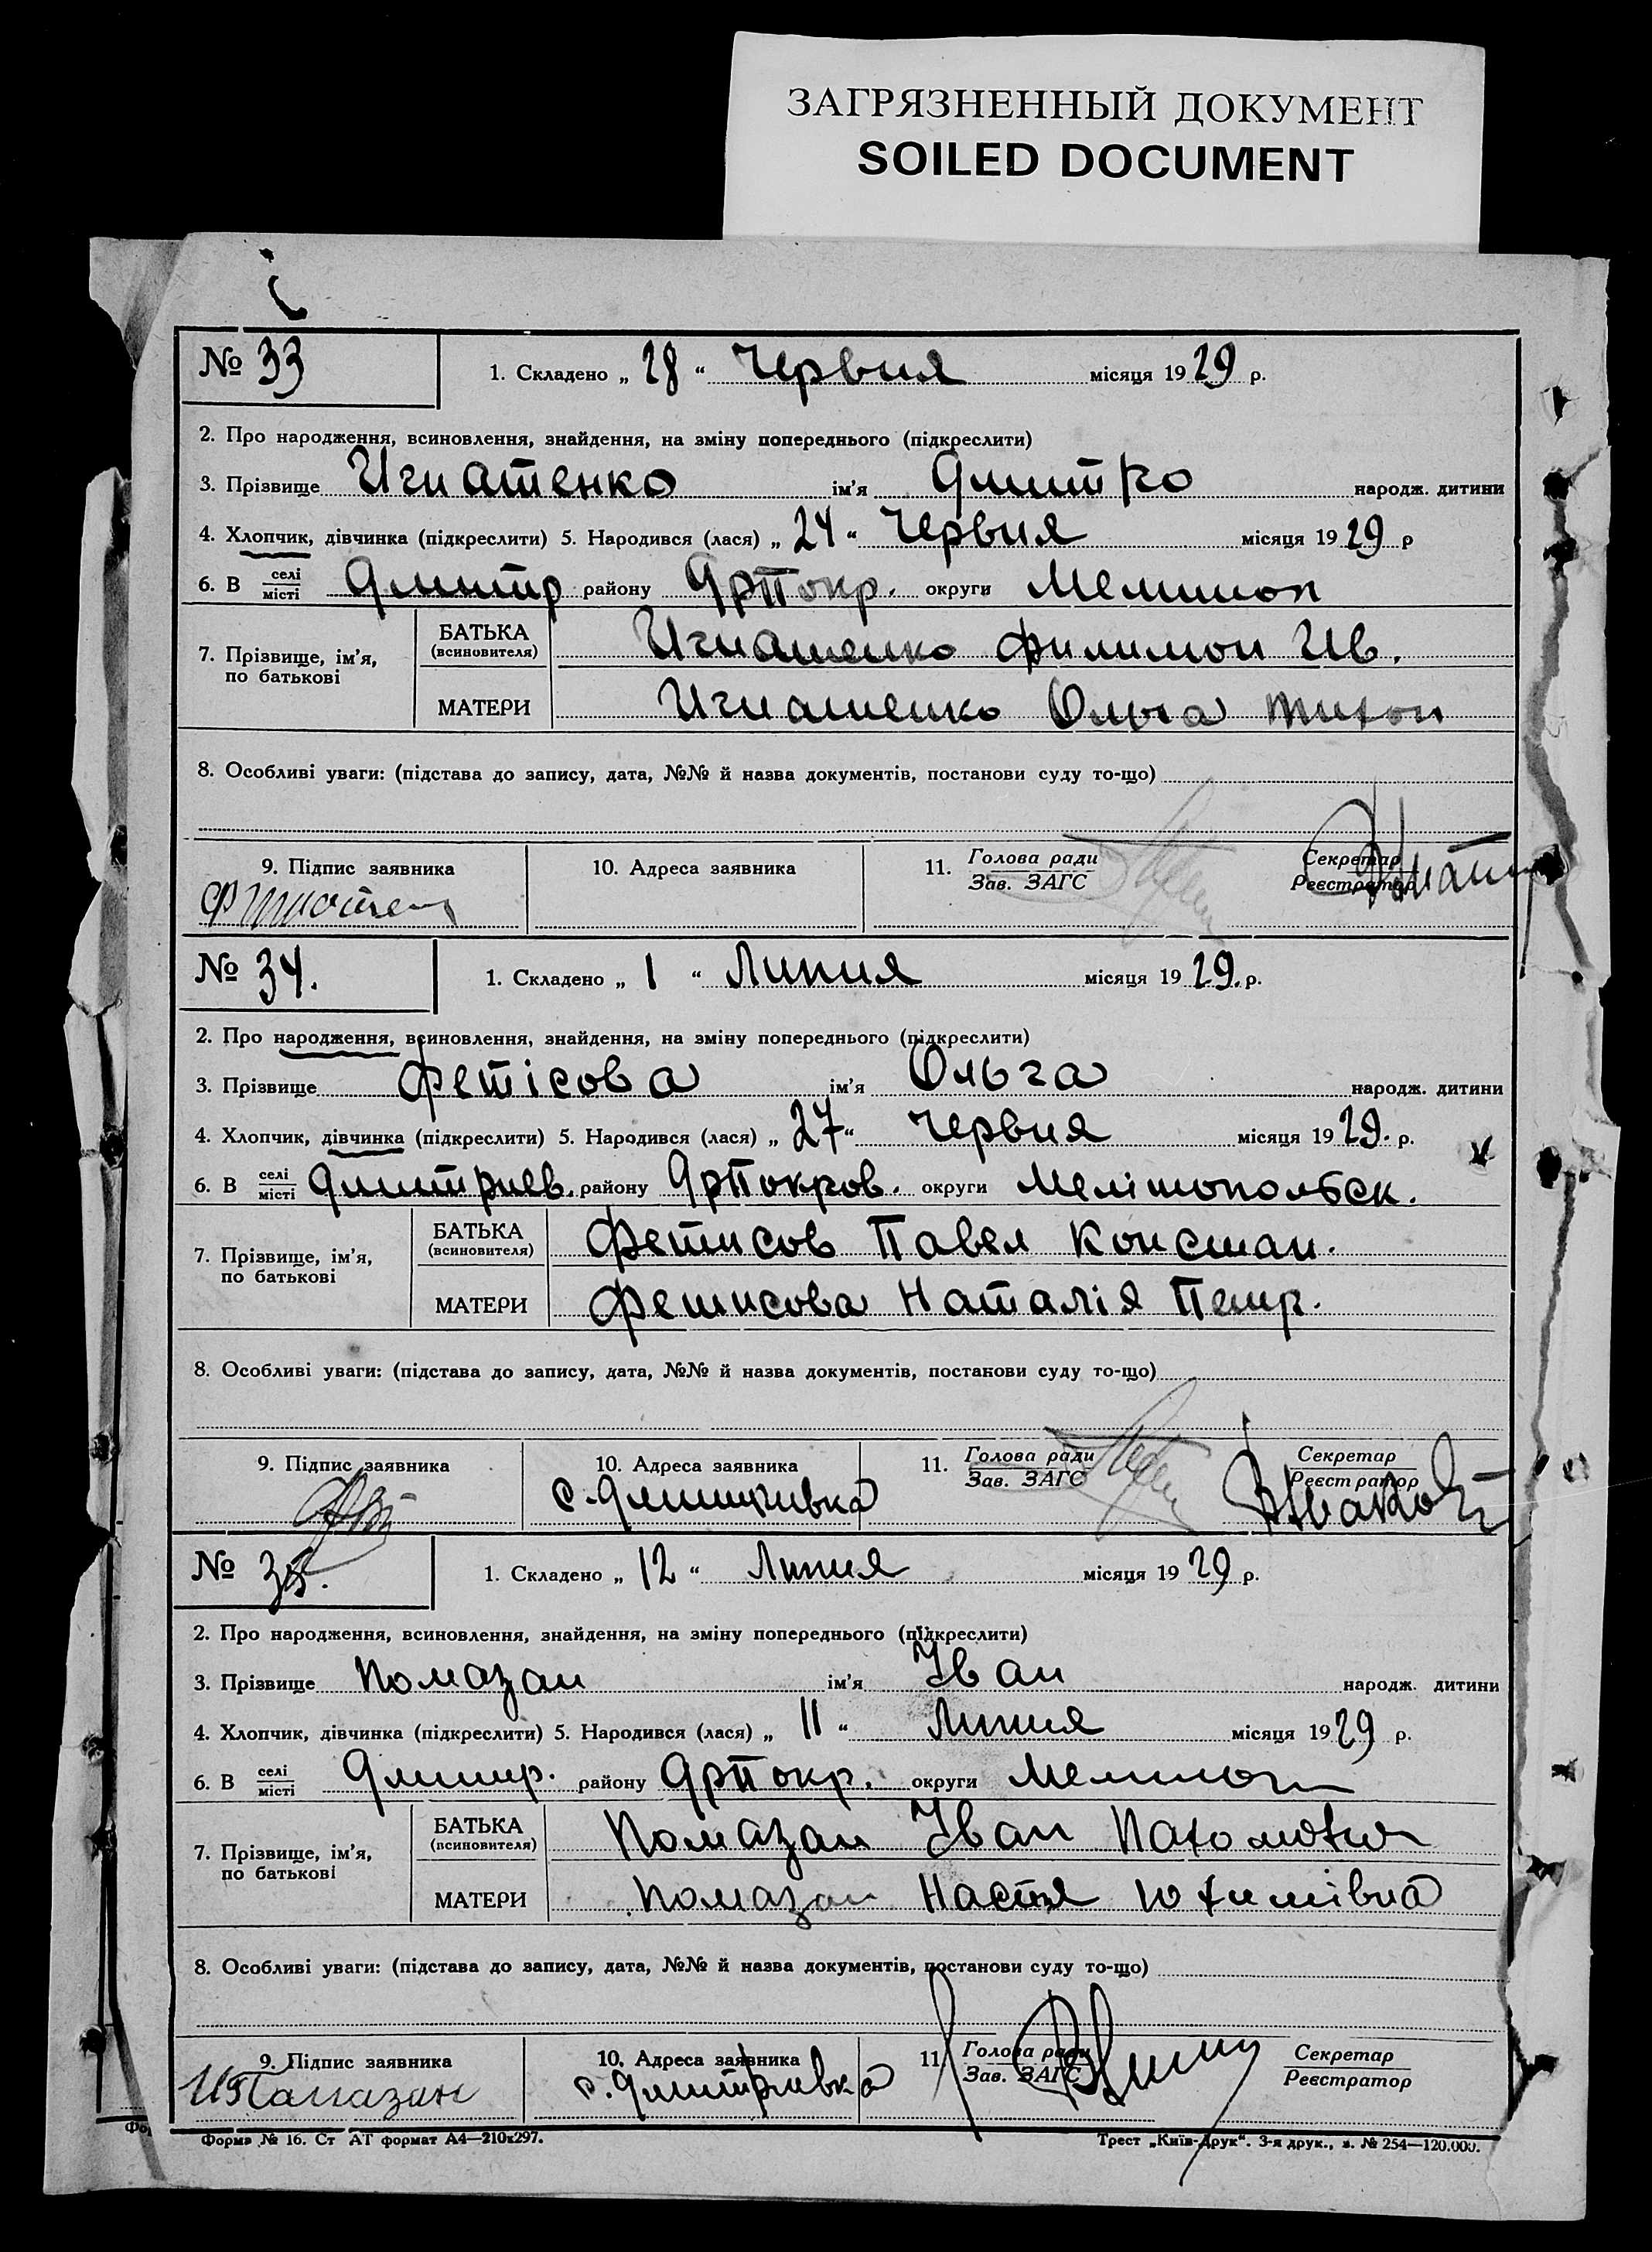 ЗАГРЯЗНЕННЫЙ ДОКУМЕНТ
SOILED DOCUMENT
№ 33
1. Складено „ 28 “ Червня місяця 1929 р.
2. Про народження, всиновлення, знайдення, на зміну попереднього (підкреслити)
3. Прізвище Игнатенко ім’я Дмитро народж. дитини
4. Хлопчик, дівчинка (підкреслити) 5. Народився (лася) „ 24 “ Червня місяця 1929 р
6. В селі місті Дмитр району ДрПокр. округи Мелитоп
7. Прізвище, ім’я, по батькові
БАТЬКА (всиновителя) Игнатенко Филимон Ив.
МАТЕРИ Игнатенко Ольга Тихон
8. Особливі уваги: (підстава до запису, дата, №№ й назва документів, постанови суду то-що)
9. Підпис заявника
10. Адреса заявника
11. Голова ради Зав. ЗАГС
Секретар Реєстратор
№ 34.
1. Складено „ 1 “ Липня місяця 1929. р.
2. Про народження, всиновлення, знайдення, на зміну попереднього (підкреслити)
3. Прізвище Фетісова ім’я Ольга народж. дитини
4. Хлопчик, дівчинка (підкреслити) 5. Народився (лася) „ 27 “ Червня місяця 1929. р.
6. В селі місті Дмитриев. району ДрПокров. округи Мелітопольск.
7. Прізвище, ім’я, по батькові
БАТЬКА (всиновителя) Фетисов Павел Констан.
МАТЕРИ Фетисова Наталія Петр.
8. Особливі уваги: (підстава до запису, дата, №№ й назва документів, постанови суду то-що)
9. Підпис заявника
10. Адреса заявника
с. Дмитрівка
11. Голова ради Зав. ЗАГС
Секретар Реєстратор
№ 35.
1. Складено „ 12 “ Липня місяця 1929 р.
2. Про народження, всиновлення, знайдення, на зміну попереднього (підкреслити)
3. Прізвище Помазан ім’я Іван народж. дитини
4. Хлопчик, дівчинка (підкреслити) 5. Народився (лася) „ 11 “ Липня місяця 1929 р.
6. В селі місті Дмитр. району ДрПокр. округи Мелитоп
7. Прізвище, ім’я, по батькові
БАТЬКА (всиновителя) Помазан Іван
МАТЕРИ Помазан Настя Юхимівна
8. Особливі уваги: (підстава до запису, дата, №№ й назва документів, постанови суду то-що)
9. Підпис заявника
ИПамазан
10. Адреса заявника
с. Дмитрівка
11. Голова ради Зав. ЗАГС
Секретар Реєстратор
Форма № 16. Ст АТ формат А4—210х297.
Трест „Київ-Друк“. 3-я друк., з. № 254—120.000.